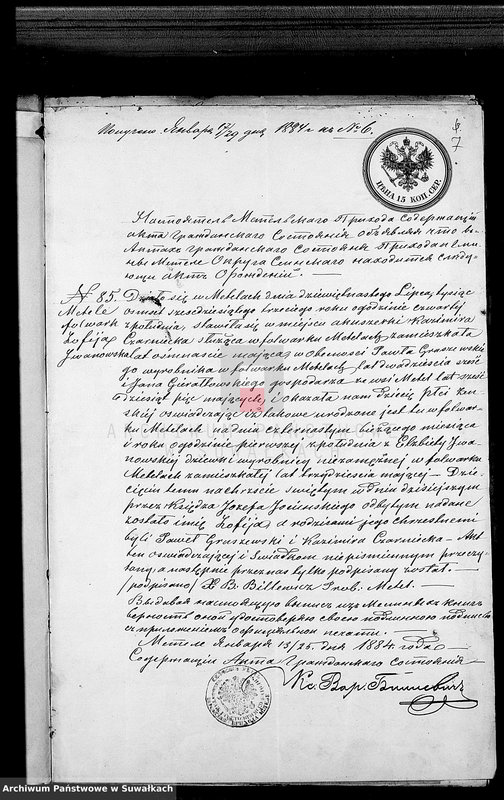 Получено Января 17/29 дня 1884 г. за № 6.
7
ЦѢНА 15 КОП. СЕР.
Настоятель Метельскаго Прихода Содержащій
акта Гражданскаго Состоянія объявляя что въ
Актахъ Гражданскаго Состоянія Прихода и Гми-
ны Метеле Округа Сейнскаго находится слѣду-
ющій актъ О рожденіи. —
№ 85.
Metele
folwark
Zofija
Iwanowska
Działo się w Metelach dnia dziewiętnastego Lipca, tysiąc
osmset szesdziesiątego trzeciego roku o godzinie czwartej
z południa, stawiła się w miejscu akuszerki Kazimira
Czarniecka służąca w folwarku Metelach zamieszkała
lat osmnascie mająca w obecności Pawła Gruszewskie-
go wyrobnika w folwarku Metelach, lat dwadzieścia sześć
i Jana Gieratowskiego gospodarza ze wsi Metel lat sześć-
dziesiąt pięć mających, i okazała nam dziecię płci żeń-
skiej oswiadczając iż takowe urodzone jest tu w folwar-
ku Metelach na dniu czternastym bieżącego miesiąca
i roku o godzinie pierwszej z południa z Elżbiety Iwa-
nowskiej dziewki wyrobnicy niezamężnej w folwarku
Metelach zamieszkałej lat trzydzieścia mającej — Dzie-
cięciu temu na chrzcie świętym w dniu dzisiejszym
przez Księdza Jozefa odbytym nadane
zostało imię Zofija, a rodzicami jego chrzestnemi
byli Paweł Gruszewski i Kazimira Czarniecka — Akt
ten oswiadczającej i Swiadkom niepismiennym przeczy-
tany a następnie przez nas tylko podpisany został. —
/podpisano/ X. B. Billewicz Prob: Metel. —
Выдавая настоящую выпись изъ Метельскихъ книгъ
верность оной удостоверяю своею подлинною подписью
съ приложеніемъ оффиціальной печати.
Метеле Января 13/25 дня 1884 года
Содержащій Акта Гражданскаго Состоянія
Кс. Вар. Биллевичъ
Archiwum Państwowe w Suwałkach